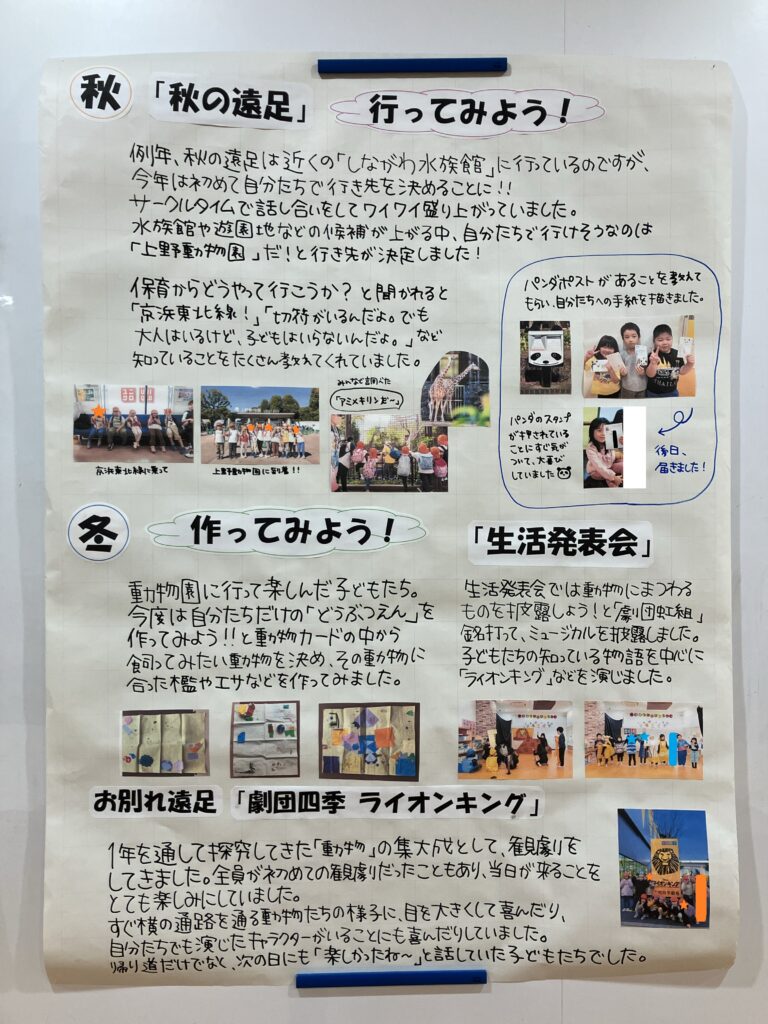 秋 「秋の遠足」 行ってみよう！
例年、秋の遠足は近くの「しながわ水族館」に行っているのですが、
今年は初めて自分たちで行き先を決めることに！！
サークルタイムで話し合いをしてワイワイ盛り上がっていました。
水族館や遊園地などの候補が上がる中、自分たちで行けそうなのは
「上野動物園」だ！と行き先が決定しました！
保育からどうやって行こうか？と聞かれると
「京浜東北線！」「切符がいるんだよ。でも
大人はいるけど、子どもはいらないんだよ。」など
知っていることをたくさん教えてくれていました。
京浜東北線に乗って
上野動物園に到着！！
みんなで調べた
「アミメキリンだ〜」
パンダポストがあることを教えて
もらい、自分たちへの手紙を描きました。
パンダのスタンプ
が押されている
ことにすぐ気が
ついて、大喜び
していました
後日、
届きました！
冬 作ってみよう！
動物園に行って楽しんだ子どもたち。
今度は自分たちだけの「どうぶつえん」を
作ってみよう！！と動物カードの中から
飼ってみたい動物を決め、その動物に
合った檻やエサなどを作ってみました。
「生活発表会」
生活発表会では動物にまつわる
ものを披露しよう！と「劇団虹組」
銘打って、ミュージカルを披露しました。
子どもたちの知っている物語を中心に
「ライオンキング」などを演じました。
お別れ遠足 「劇団四季 ライオンキング」
1年を通して探究してきた「動物」の集大成として、観劇りを
してきました。全員が初めての観劇りだったこともあり、当日が来ることを
とても楽しみにしていました。
すぐ横の通路を通る動物たちの様子に、目を大きくして喜んだり、
自分たちでも演じたキャラクターがいることにも喜んだりしていました。
帰り道だけでなく、次の日にも「楽しかったね〜」と話していた子どもたちでした。